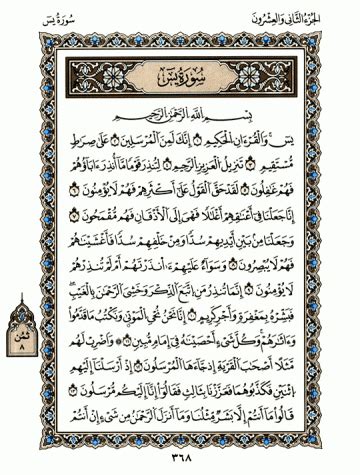 سورة يس
الجزء الثاني والعشرون
سورة يس
بسم الله الرحمن الرحيم
يس والقرءان الحكيم ١ إنك لمن المرسلين ٢ على صرط
مستقيم ٣ تنزيل العزيز الرحيم ٤ لتنذر قوما ما أنذر ءاباؤهم
فهم غفلون ٥ لقد حق القول على أكثرهم فهم لا يؤمنون ٦
إنا جعلنا في أعنقهم أغللا فهي إلى الأذقان فهم مقمحون ٧
وجعلنا من بين أيديهم سدا ومن خلفهم سدا فأغشينهم
فهم لا يبصرون ٨ وسواء عليهم ءأنذرتهم أم لم تنذرهم
لا يؤمنون ٩ إنما تنذر من اتبع الذكر وخشي الرحمن بالغيب
فبشره بمغفرة وأجر كريم ١٠ إنا نحن نحي الموتى ونكتب ما قدموا
وءاثرهم وكل شيء أحصينه في إمام مبين ١١ واضرب لهم
مثلا أصحب القرية إذ جاءها المرسلون ١٢ إذ أرسلنا إليهم
اثنين فكذبوهما فعززنا بثالث فقالوا إنا إليكم مرسلون ١٣
قالوا ما أنتم إلا بشر مثلنا وما أنزل الرحمن من شيء إن أنتم
ثمن
٨
٣٦٨